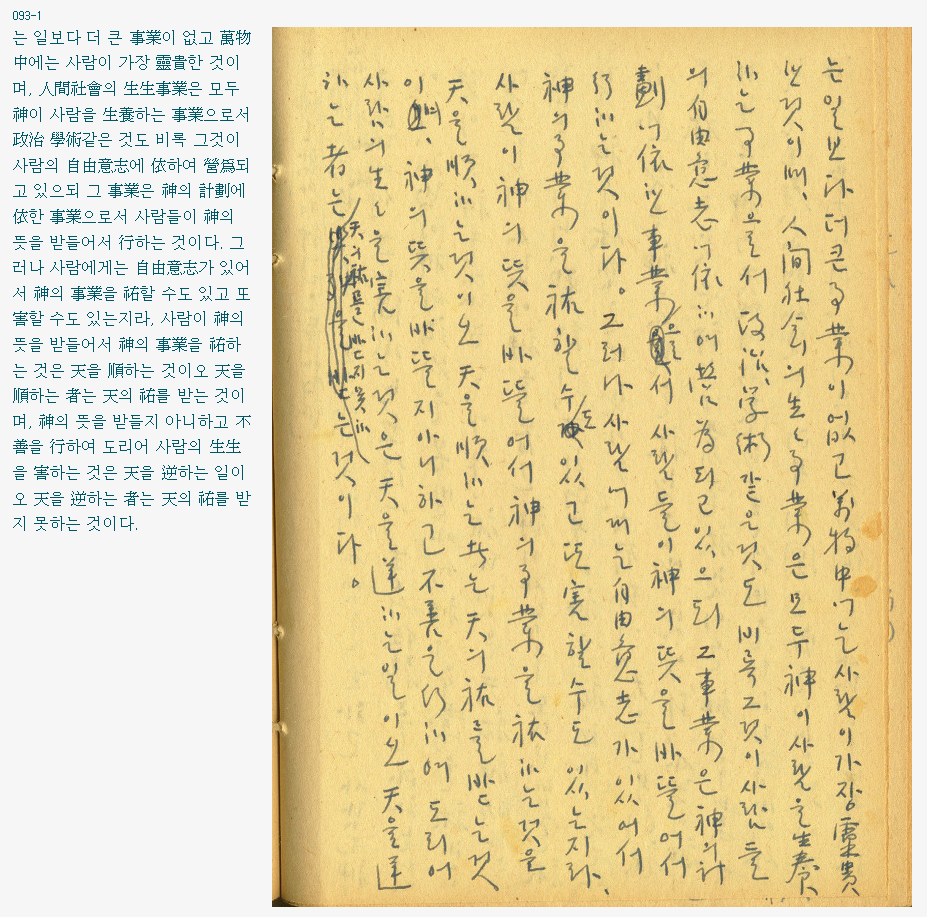 093-1
는 일보다 더 큰 事業이 없고 萬物
中에는 사람이 가장 靈貴한 것이
며, 人間社會의 生生事業은 모두
神이 사람을 生養하는 事業으로서
政治 學術같은 것도 비록 그것이
사람의 自由意志에 依하여 營爲되
고 있으되 그 事業은 神의 計劃에
依한 事業으로서 사람들이 神의
뜻을 받들어서 行하는 것이다. 그
러나 사람에게는 自由意志가 있어
서 神의 事業을 祐할 수도 있고 또
害할 수도 있는지라, 사람이 神의
뜻을 받들어서 神의 事業을 祐하
는 것은 天을 順하는 것이오 天을
順하는 者는 天의 祐를 받는 것이
며, 神의 뜻을 받들지 아니하고 不
善을 行하여 도리어 사람의 生生
을 害하는 것은 天을 逆하는 일이
오 天을 逆하는 者는 天의 祐를 받
지 못하는 것이다.
는 일보다 더 큰 事業이 없고 萬物中에는 사람이 가장 靈貴
한 것이며, 人間社會의 生生事業은 모두 神이 사람을 生養
하는 事業으로서 政治, 學術 같은 것도 비록 그것이 사람들
의 自由意志에 依하여 營爲되고 있으되 그 事業은 神의 計
劃에 依한 事業으로서 사람들이 神의 뜻을 바뜰어서
行하는 것이다。 그러나 사람에게는 自由意志가 있어서
神의 事業을 祐할 수도 있고 또 害할 수도 있는지라,
사람이 神의 뜻을 바뜰어서 神의 事業을 祐하는 것은
天을 順하는 것이오 天을 順하는 者는 天의 祐를 받는 것
이며, 神의 뜻을 바뜰지 아니하고 不善을 行하여 도리어
사람의 生生을 害하는 것은 天을 逆하는 일이오 天을 逆
하는 者는 天의 祐를 받지 못하는 것이다。